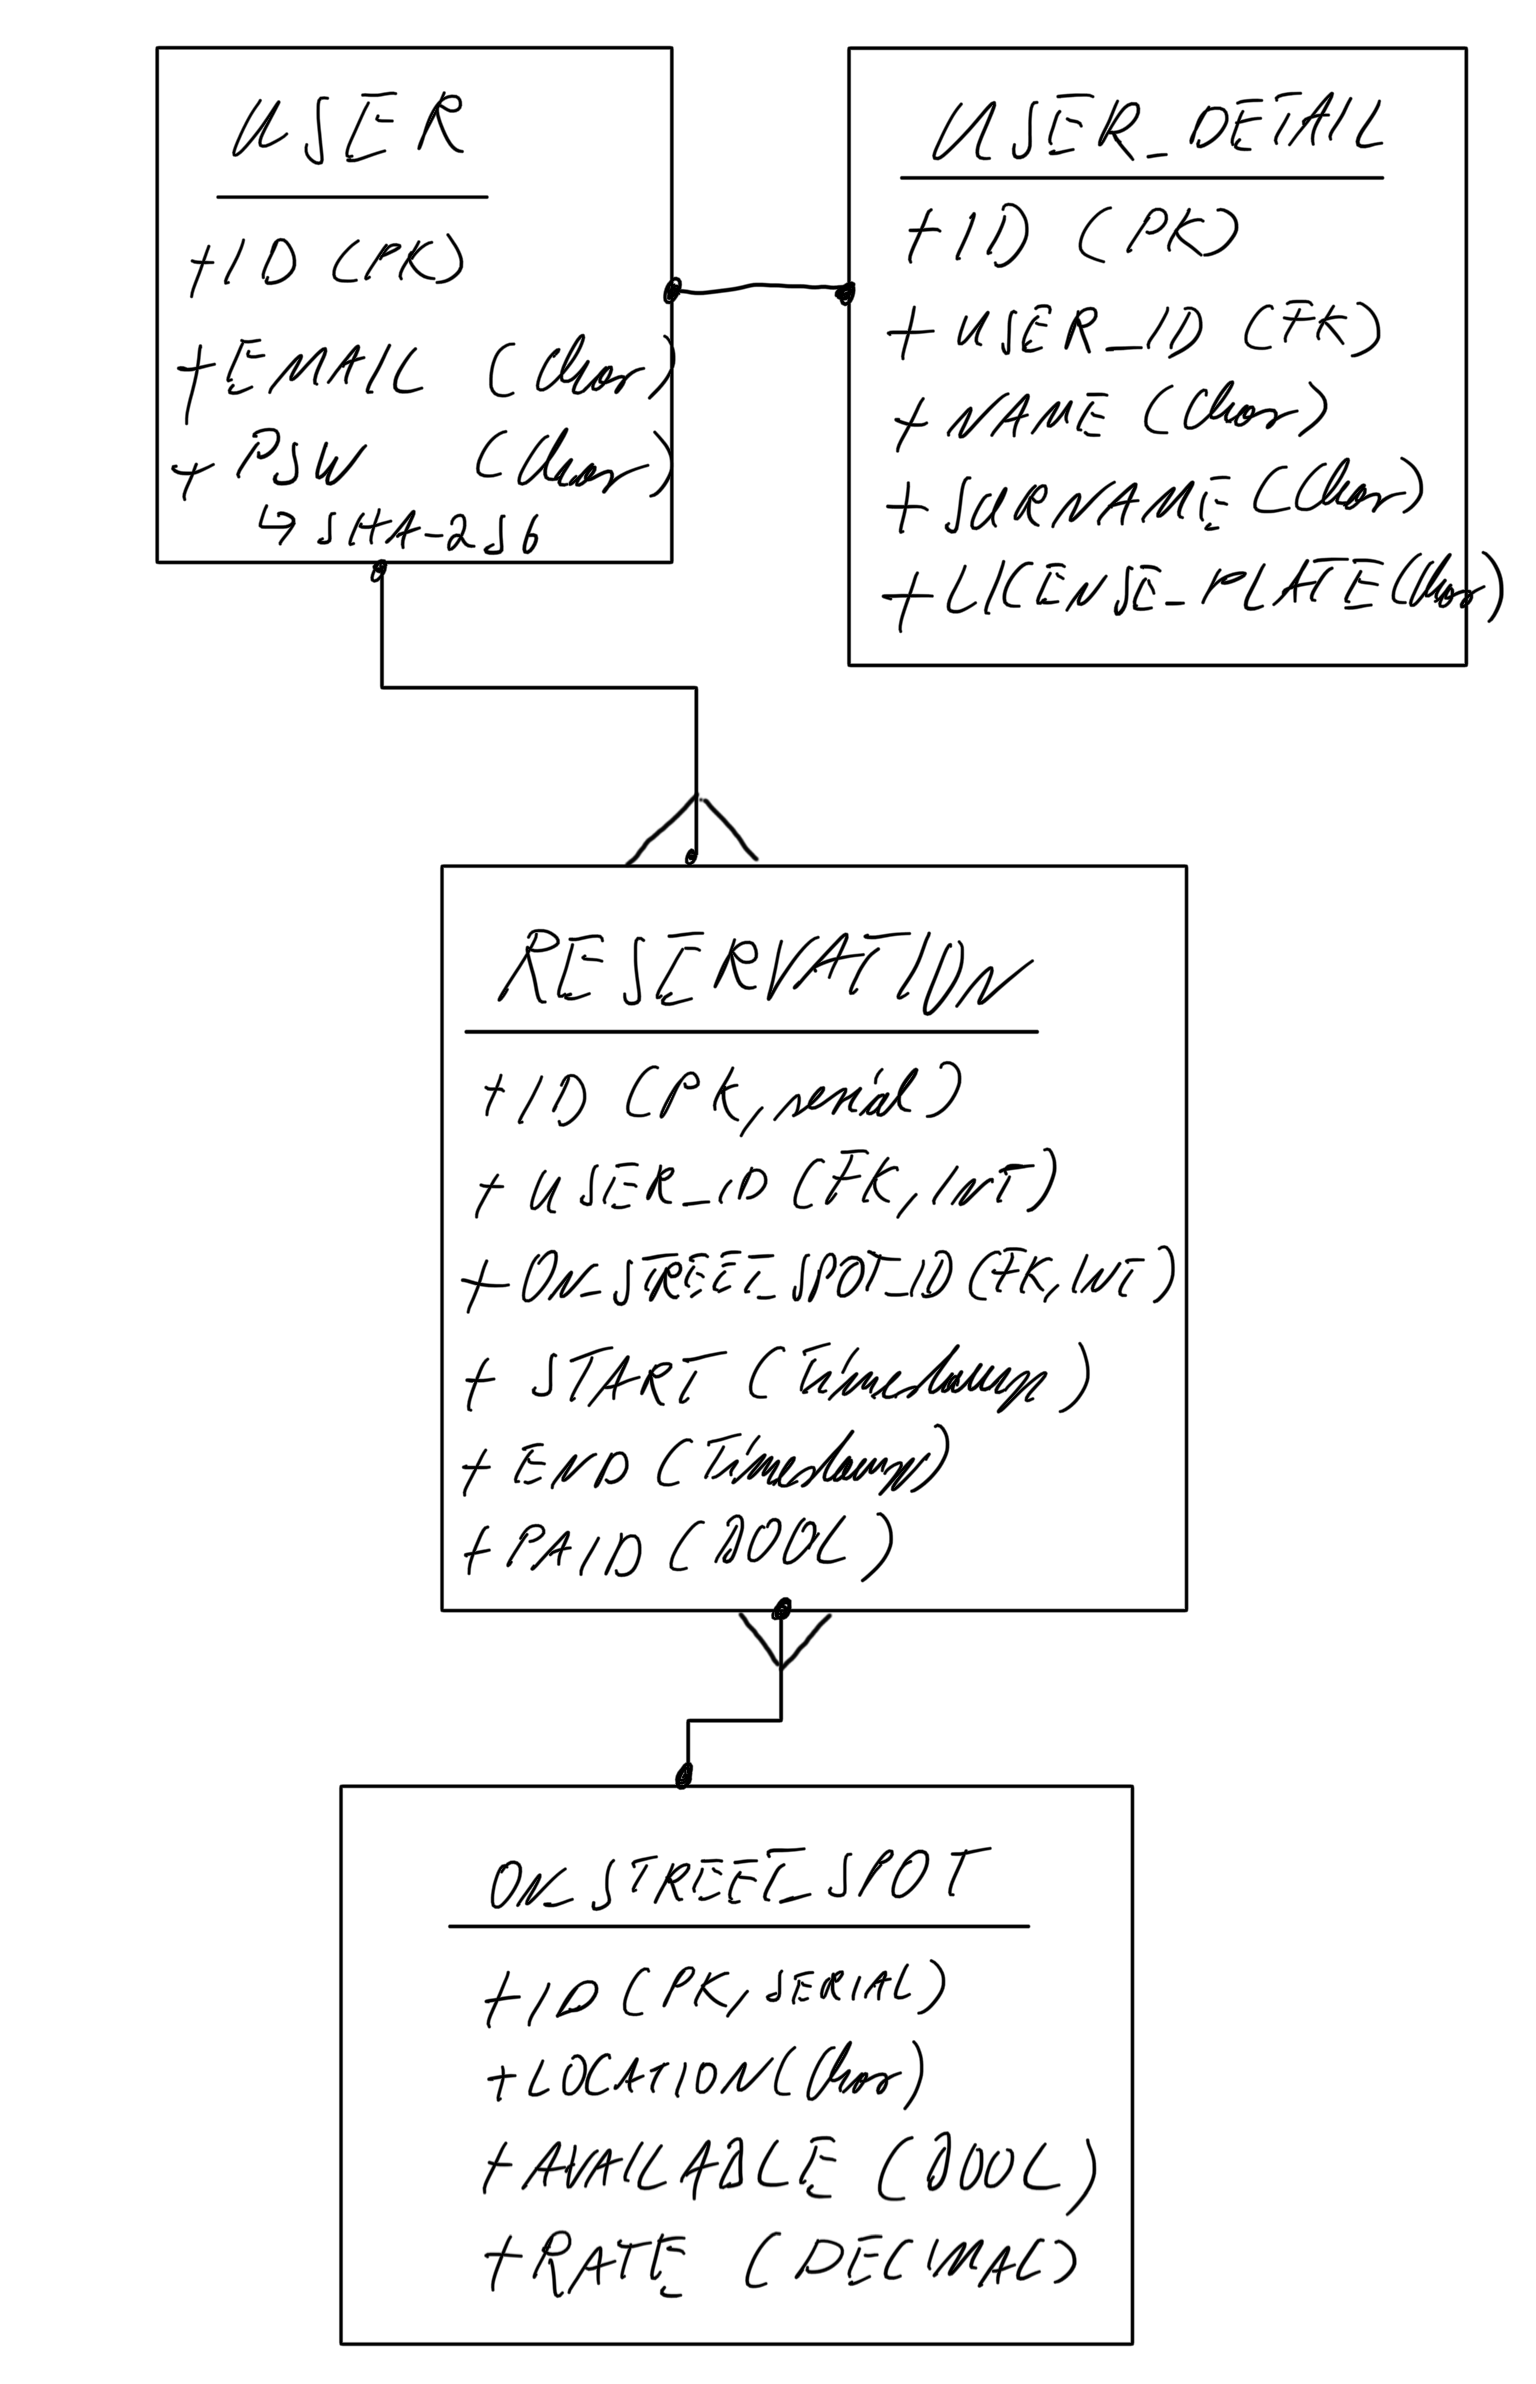 USER
+ID (PK)
+EMAIL (Char)
+ PSW (Char)
↳ SHA-256
USER_DETAIL
+ID (PK)
+ USER_ID (FK)
+ NAME (Char)
+ SURNAME (Char)
+ LICENSE_PLATE (Char)
RESERVATION
+ID (PK, serial)
+ USER_ID (FK, INT)
+ ON_STREET_SPOT_ID (FK, INT)
+ START (Timestamp)
+ END (Timestamp)
+ PAID (BOOL)
ON_STREET_SPOT
+ID (PK, SERIAL)
+LOCATION (Char)
+AVAILABLE (BOOL)
+RATE (DECIMAL)